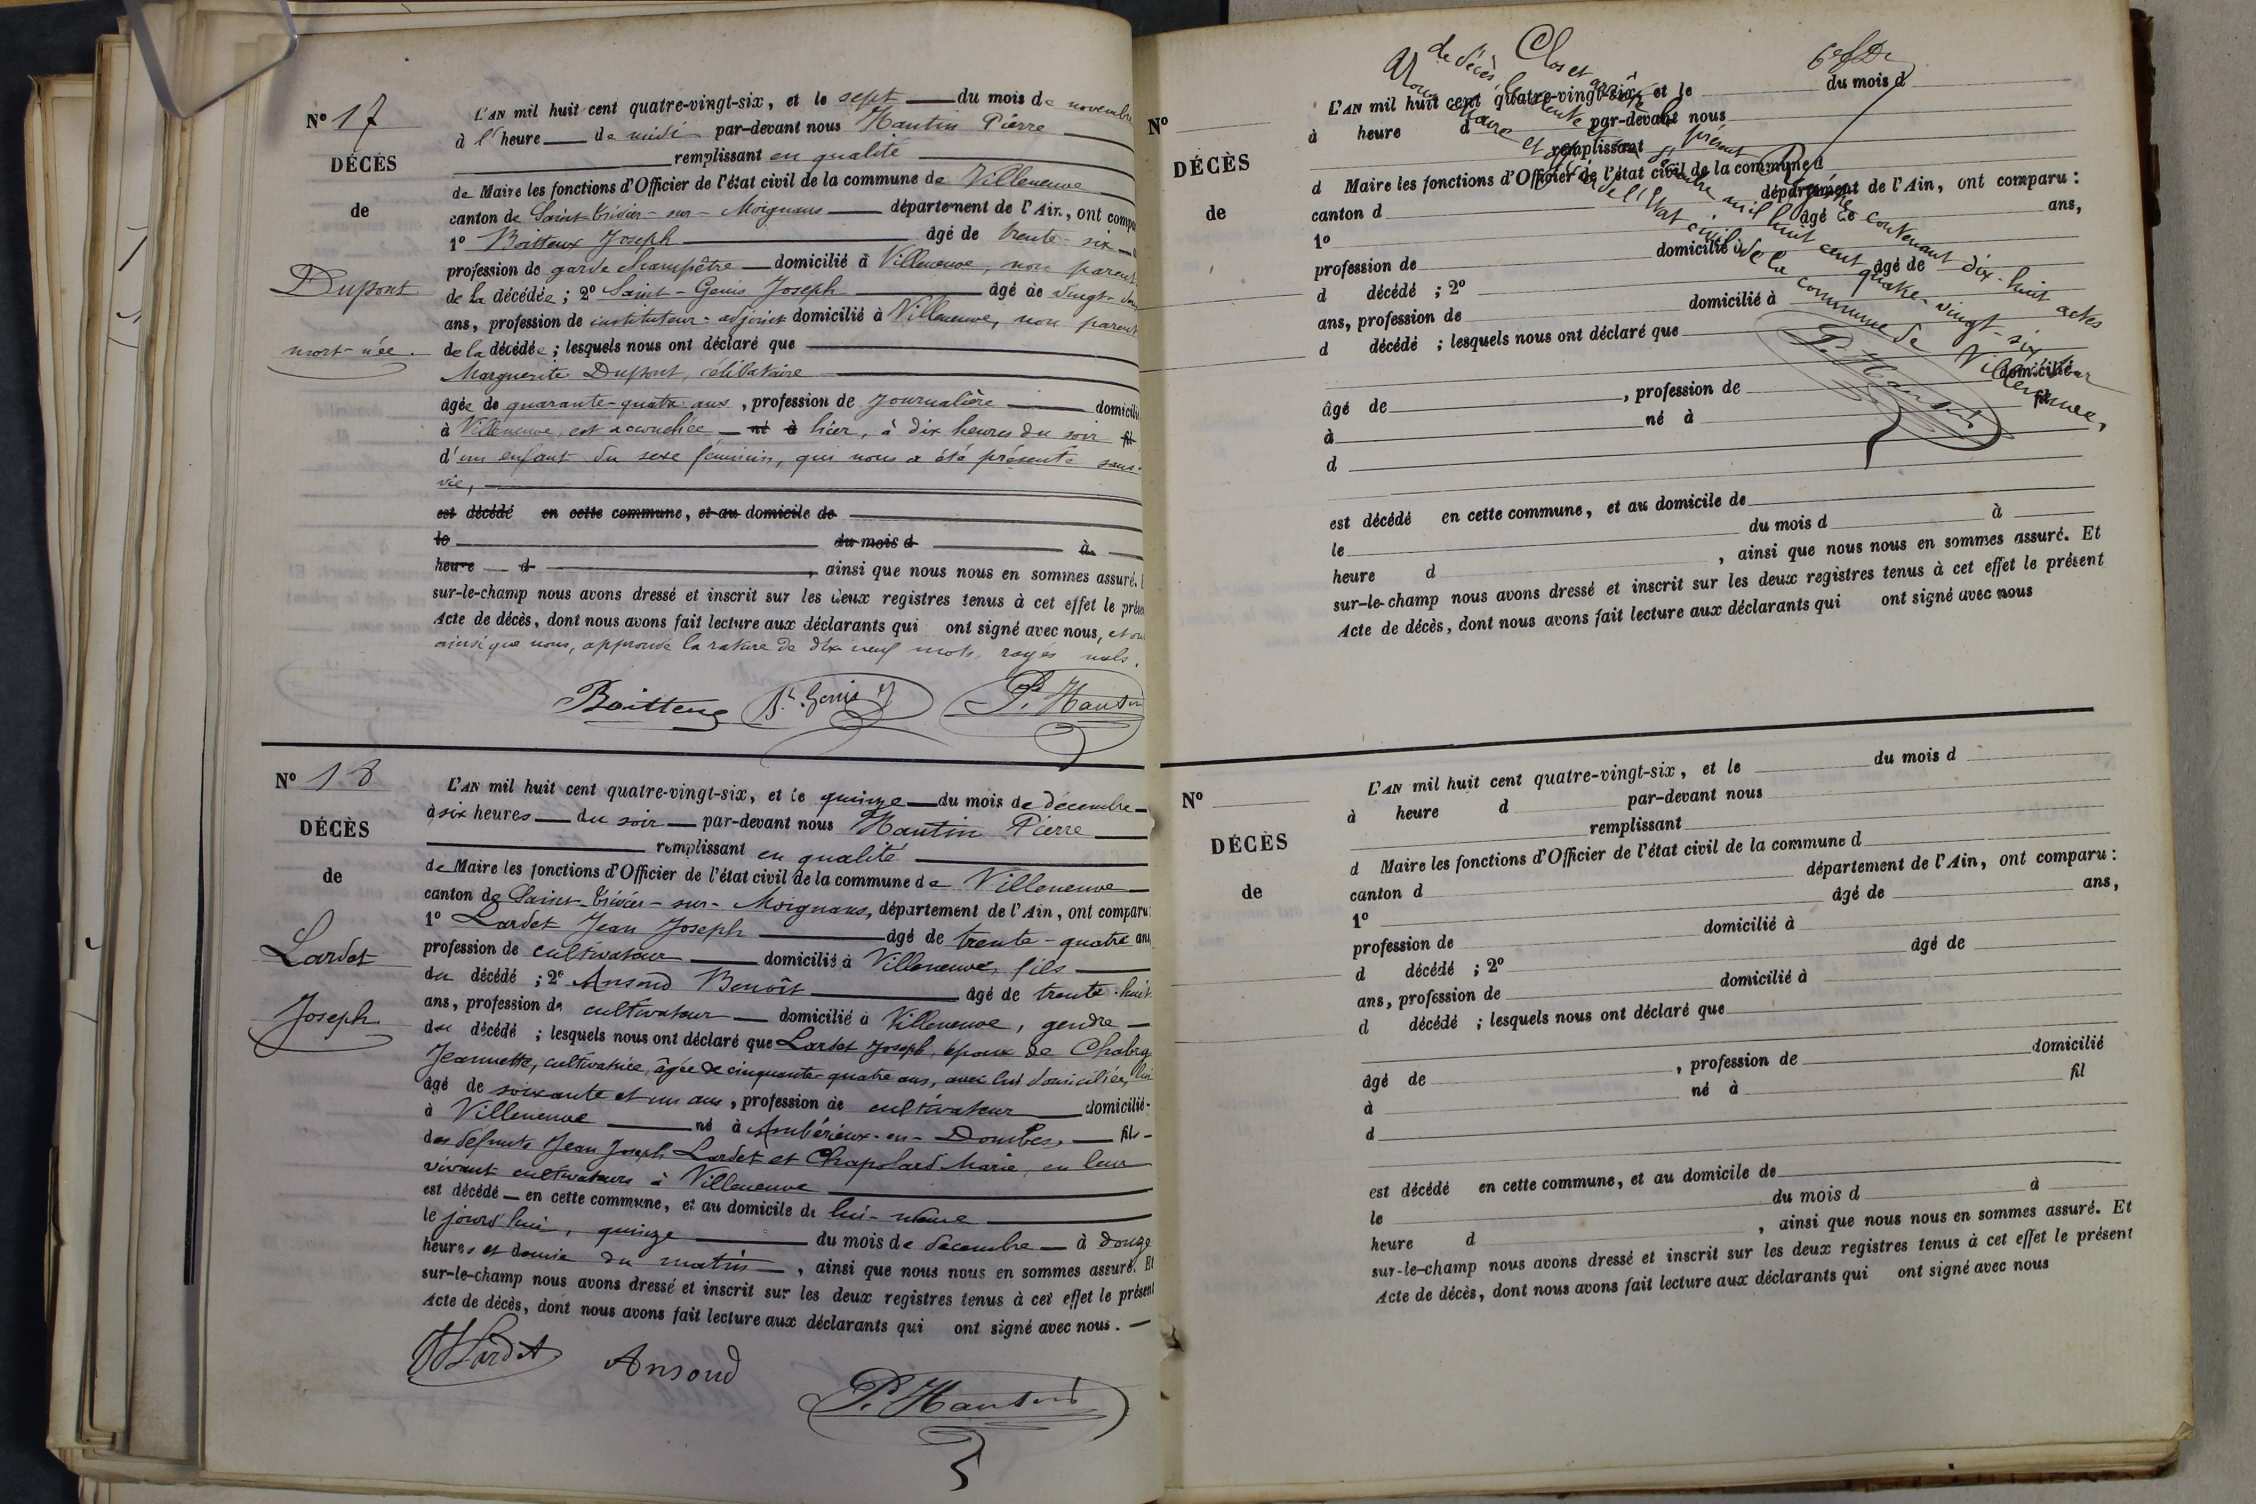 N° 17
DÉCÈS
de
Dupont
mort-née.
L'AN mil huit cent quatre-vingt-six, et le sept du mois de novembre
à l'heure de midi par-devant nous Hantin Pierre
remplissant en qualité
de Maire les fonctions d'Officier de l'état civil de la commune de Villeneuve
canton de Saint-Trivier-sur-Moignans département de l'Ain, ont compa
1° Boitteux Joseph âgé de trente-six
profession de garde champêtre domicilié à Villeneuve, non parent
de la décédée ; 2° Saint-Genis Joseph âgé de vingt-
ans, profession de instituteur-adjoint domicilié à Villeneuve, non parent
de la décédée ; lesquels nous ont déclaré que
Marguerite Dupont, célibataire
âgée de quarante-quatre ans, profession de journalière domicilié
à Villeneuve, est accouchée né à hier, à dix heures du soir fil
d'un enfant du sexe féminin, qui nous a été présenté sans
vie,
est décédé en cette commune, et au domicile de
le du mois d à
heure d , ainsi que nous nous en sommes assuré. E
sur-le-champ nous avons dressé et inscrit sur les deux registres tenus à cet effet le présen
Acte de décès, dont nous avons fait lecture aux déclarants qui ont signé avec nous, et ont
ainsi que nous, approuvé la rature de dix neuf mots rayés nuls.
Boitteux St. Genis J P. Hantin
N° 18
DÉCÈS
de
Lardet
Joseph
L'AN mil huit cent quatre-vingt-six, et le quinze du mois de décembre
à six heures du soir par-devant nous Hantin Pierre
remplissant en qualité
de Maire les fonctions d'Officier de l'état civil de la commune de Villeneuve
canton de Saint-Trivier-sur-Moignans, département de l'Ain, ont comparu:
1° Lardet Jean Joseph âgé de trente-quatre ans
profession de cultivateur domicilié à Villeneuve, fils
du décédé ; 2° Ansoud Benoît âgé de trente-huit
ans, profession de cultivateur domicilié à Villeneuve, gendre
du décédé ; lesquels nous ont déclaré que Lardet Joseph, époux de
Jeannette, cultivatrice, âgée de cinquante-quatre ans, avec lui domiciliée, lui
âgé de soixante et un ans, profession de cultivateur domicilié
à Villeneuve né à Ambérieux-en-Dombes, fils
des défunts Jean Joseph Lardet et Chapolard Marie, en leur
vivant cultivateurs à Villeneuve
est décédé en cette commune, et au domicile de lui-même
le jourd'hui, quinze du mois de décembre à douze
heures et demie du matin, ainsi que nous nous en sommes assuré. Et
sur-le-champ nous avons dressé et inscrit sur les deux registres tenus à cet effet le présent
Acte de décès, dont nous avons fait lecture aux déclarants qui ont signé avec nous.
Lardet Ansoud
P. Hantin
Clos et arrêté le présent Registre
de décès, contenant dix-huit actes
le trente et un décembre mil huit cent quatre-vingt-six par
Nous Maire et officier de l'Etat civil de la commune de Villeneuve,
P. Hantin
N°
DÉCÈS
de
L'AN mil huit cent quatre-vingt-six, et le du mois d
à heure d par-devant nous
remplissant
d Maire les fonctions d'Officier de l'état civil de la commune d
canton d département de l'Ain, ont comparu :
1° âgé de ans,
profession de domicilié à
d décédé ; 2° âgé de
ans, profession de domicilié à
d décédé ; lesquels nous ont déclaré que
âgé de , profession de domicilié
à né à fil
d
est décédé en cette commune, et au domicile de
le du mois d à
heure d , ainsi que nous nous en sommes assuré. Et
sur-le-champ nous avons dressé et inscrit sur les deux registres tenus à cet effet le présent
Acte de décès, dont nous avons fait lecture aux déclarants qui ont signé avec nous
N°
DÉCÈS
de
L'AN mil huit cent quatre-vingt-six, et le du mois d
à heure d par-devant nous
remplissant
d Maire les fonctions d'Officier de l'état civil de la commune d
canton d département de l'Ain, ont comparu :
1° âgé de ans,
profession de domicilié à
d décédé ; 2° âgé de
ans, profession de domicilié à
d décédé ; lesquels nous ont déclaré que
âgé de , profession de domicilié
à né à fil
d
est décédé en cette commune, et au domicile de
le du mois d à
heure d , ainsi que nous nous en sommes assuré. Et
sur-le-champ nous avons dressé et inscrit sur les deux registres tenus à cet effet le présent
Acte de décès, dont nous avons fait lecture aux déclarants qui ont signé avec nous